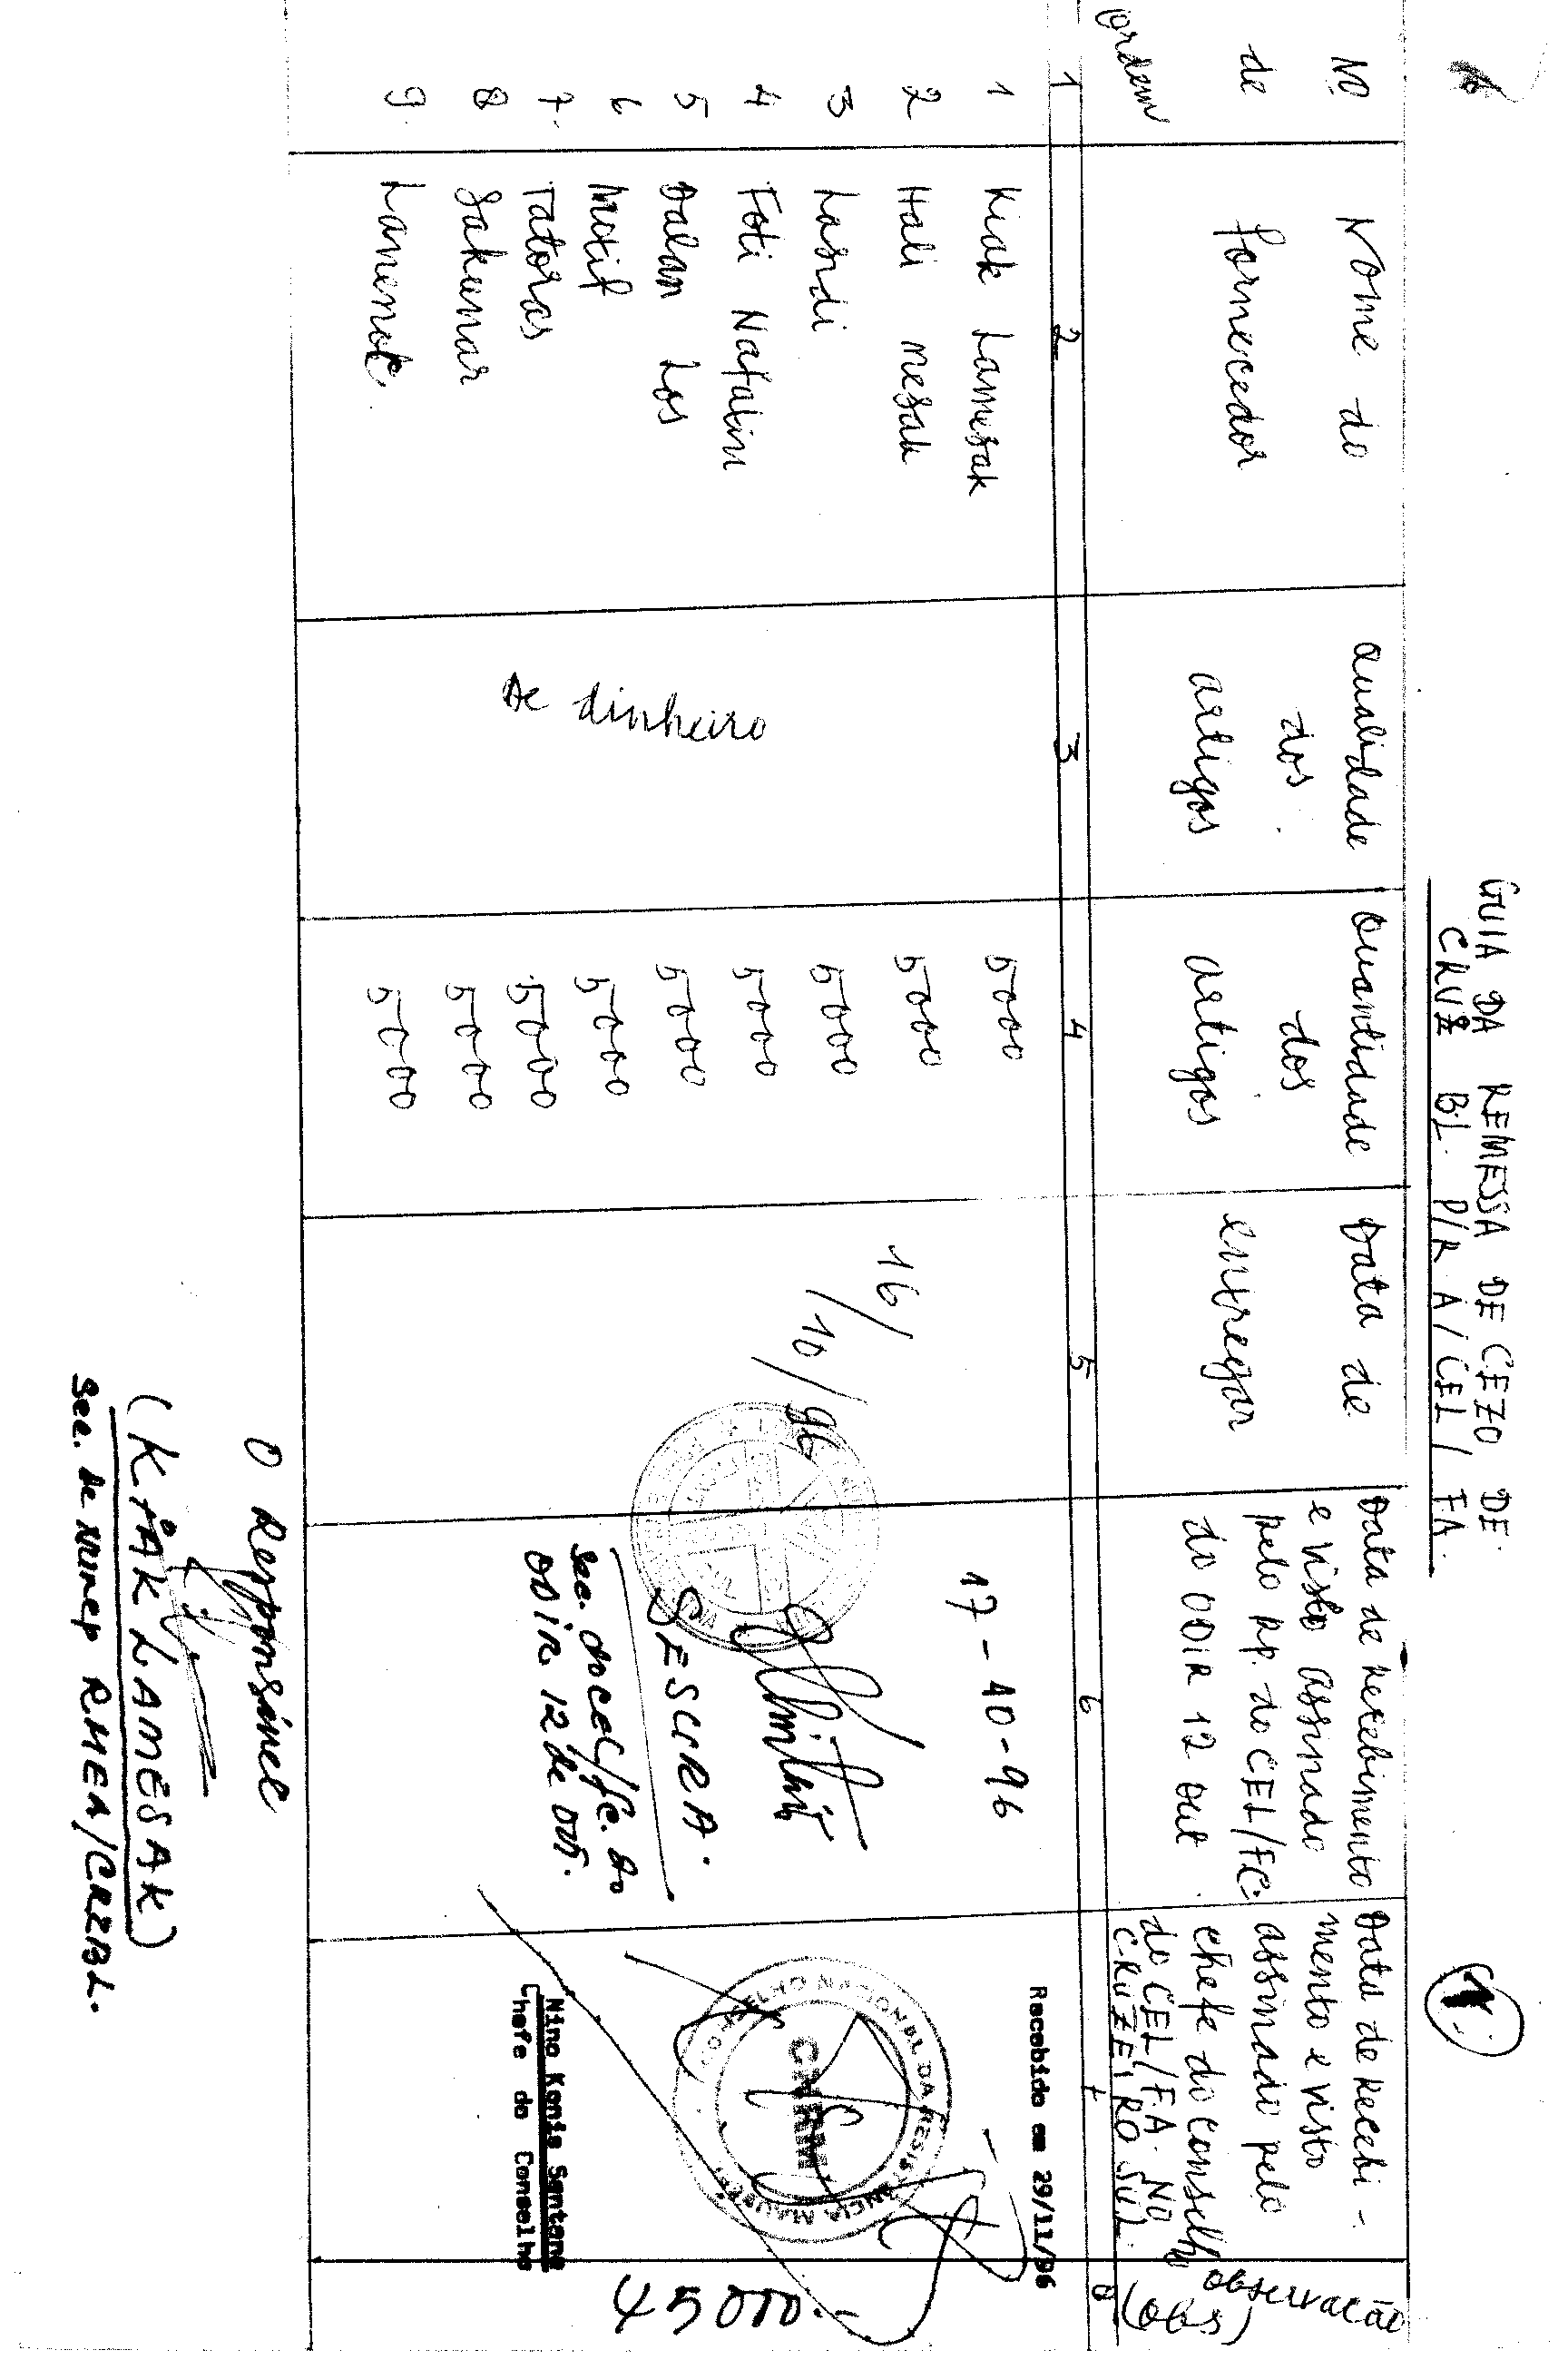 GUIA DA REMESSA DE CEZO DE
CRUZ BL. P/R A/CEL/FA.
1
Nº de ordem
Nome do fornecedor
Qualidade dos artigos
Quantidade dos artigos
Data de entregar
Data de Retebimento e visto assinado pelo Rp. do CEL/FC. do ODIR 12 OUT
Data de Recebi-mento e visto assinado pelo chefe do conselho do CEL/FA. NO CRUZEIRO SUL
observação (obs)
1 2 3 4 5 6 7 8
1 Kiak Lamesak 5000
2 Hali mesak 5000
3 Lasidi 5000
4 Foti Nafalin 5000
5 Dalan Los 5000
6 Motif 5000
7 Tatoras 5000
8 Sakunar 5000
9 Lanemok 5000
De dinheiro
16/10/96
17-10-96
SESCCRA.
Sec. do CEC/FC. do
ODIR 12 de out.
Recebido em 29/11/96
CONSELHO NACIONAL DA RESISTÊNCIA MAUBERE
CNRM
Nino Konis Santana
Chefe do Conselho
45000.-
O Responsavel
(KIAK LAMESAK)
Sec. de Nurep RMEA/CRZBL.